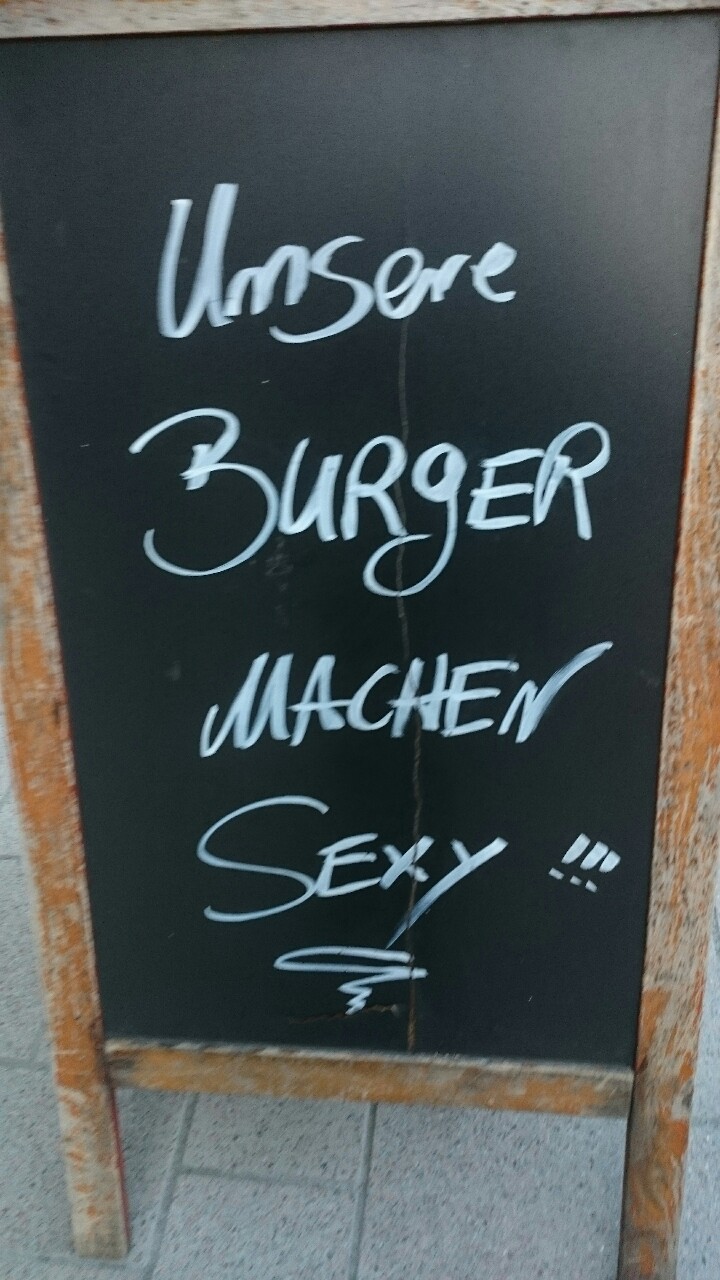 Unsere
BURgER
MACHEN
SEXY !!!